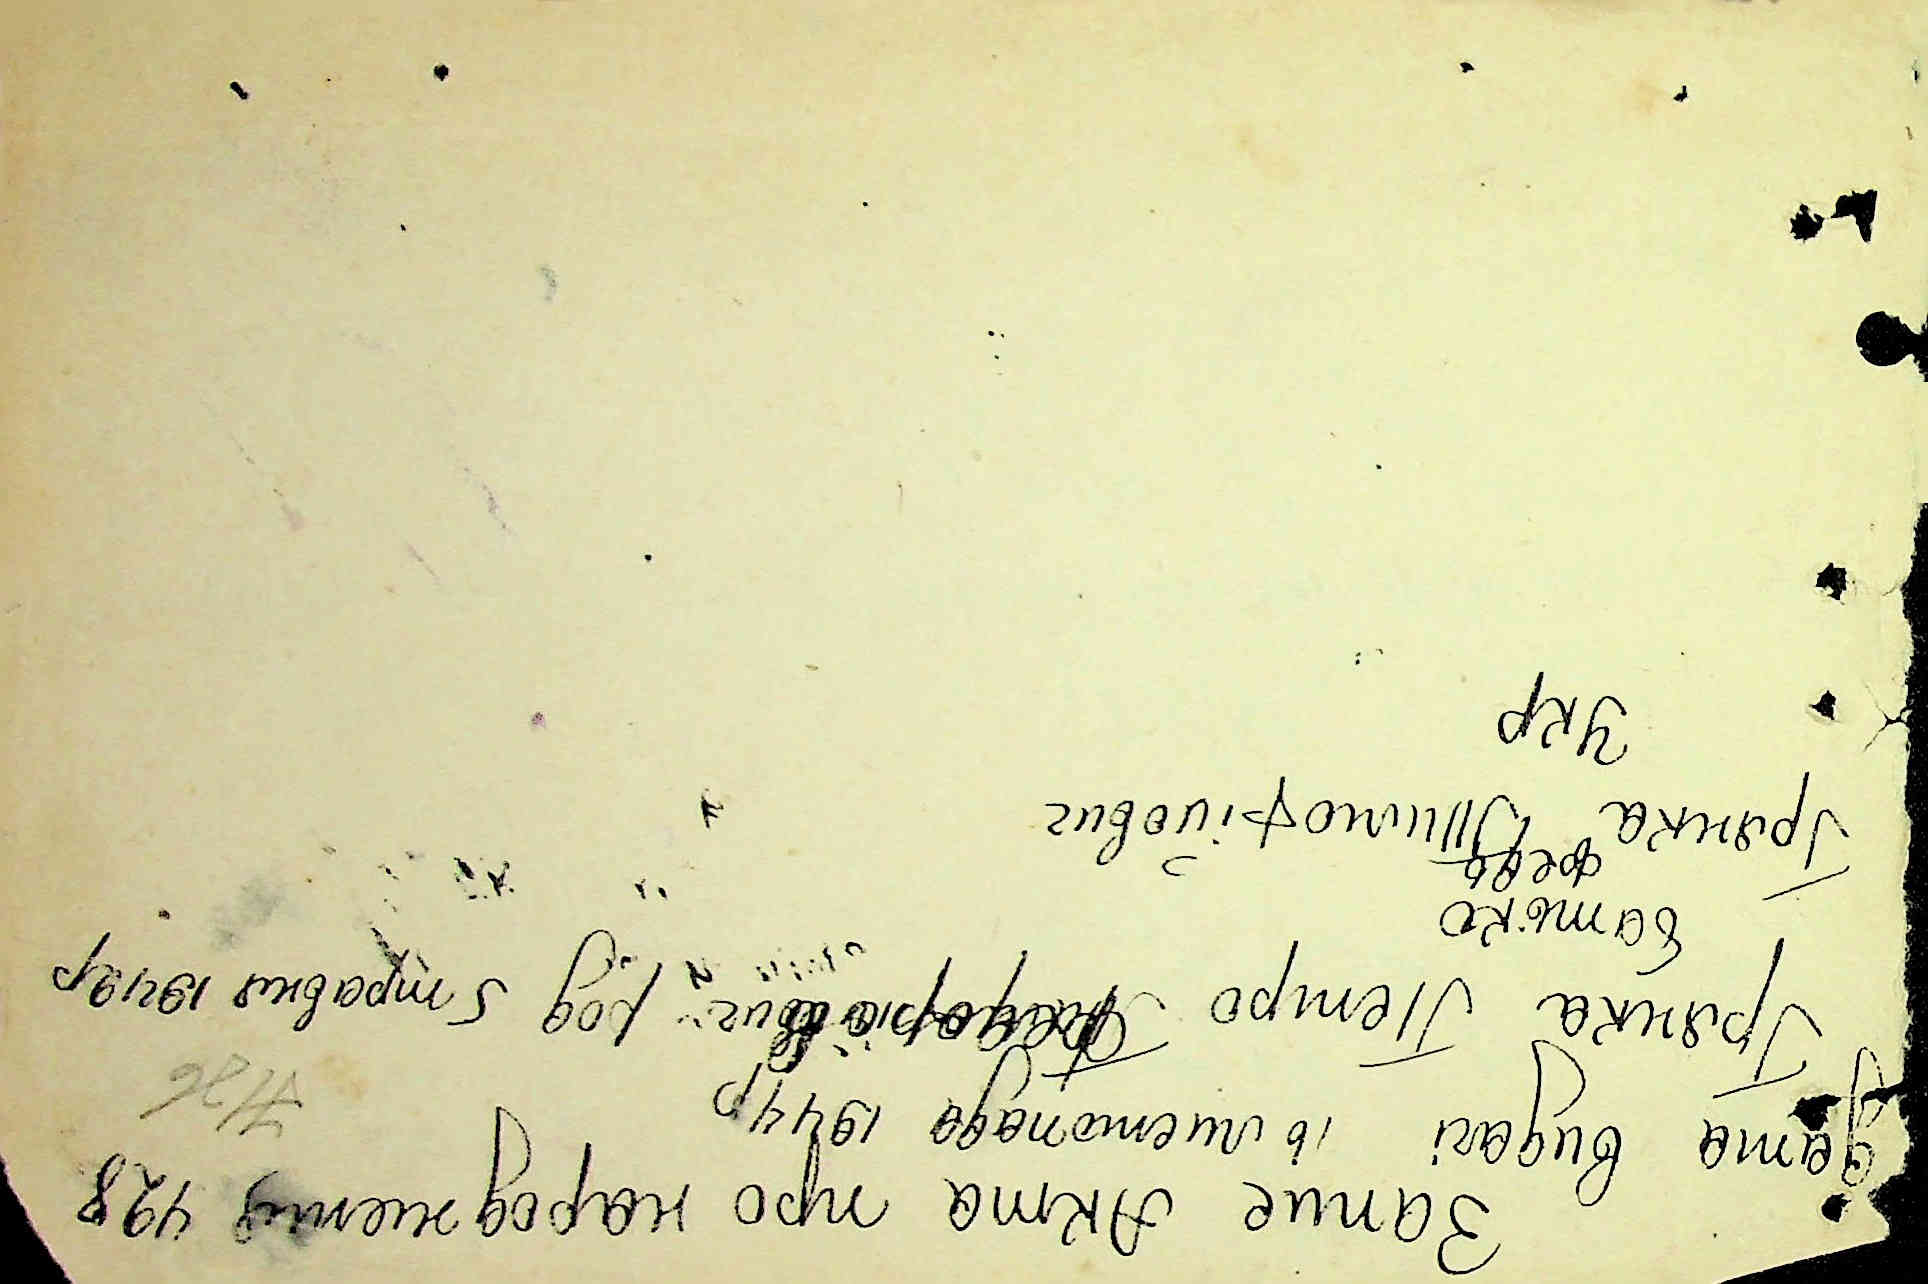 Запис Акта про народження 428
дата видачі 16 листопада 1944р
Грянка Петро Федорович род 5 травня 1942р
батько
Федо
Грянка Тимофійович
Укр